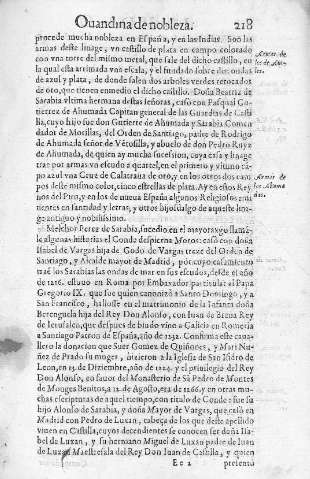 Ouandina de nobleza. 218
procede mucha nobleza en España, y en las Indias. Son las
armas deste linage, vn castillo de plata en campo colorado
con vna torre del mismo metal, que sale del dicho castillo, en
la qual està arrimada vna escala, y el fundado sobre dos ondas
de azul y plata, de donde salen dos arboles verdes retocados
de oro, que tienen enmedio el dicho castillo. Doña Beatriz de
Sarabia vltima hermana destas señoras, casò con Pasqual Gu-
tierrez de Ahumada Capitan general de las Guardias de Casti
lla, cuyo hijo fue don Gutierre de Ahumada y Sarabia Comen
dador de Mosillas, del Orden de Santiago, padre de Rodrigo
de Ahumada señor de y abuelo de don Pedro Ruyz
de Ahumada, de quien ay mucha sucession, cuya casa y linage
trae por armas vn escudo a quarteles, en el primero y vltimo cã
po azul vna Cruz de Calatraua de oro, y en los otros dos cam
pos deste mismo color, cinco estrellas de plata. Ay en estos Rey
nos del Piru, y en los de nueua España algunos Religiosos emi
nentes en santidad y letras, y otros hijosdalgo de aqueste lina-
ge antiguo y nobilissimo.
Melchor Perez de Sarabia, sucedio en el mayorasgo llamã
le algunas historias el Conde despierna Moros: casò con doña
Isabel de Vargas hija de Godo de Vargas treze del Orden de
Santiago, y Alcalde mayor de Madrid, por cuyo casamiento
traẽ los Sarabias las ondas de mar en sus escudos, desde el año
de 1216. estuuo en Roma por Embaxador particular al Papa
Gregorio IX. que fue quien canonizò a Santo Domingo, y a
San Francisco, hallose en el matrimonio de la Infanta doña
Berenguela hija del Rey Don Alonso, con Iuan de Brena Rey
de Ierusalen, que despues de biudo vino a Galicia en Romeria
a Santiago Patron de España, año de 1232. Confirma este caua-
llero la donacion que Suer Gomez de Quiñones, y Mari Nu-
ñez de Prado su muger, hizieron a la Iglesia de San Isidro de
Leon, en 15. de Diziembre, año de 1224. y el priuilegio del Rey
Don Alonso, en fauor del Monasterio de Sã Pedro de Montes
de Monges Benitos, a 12. de Agosto, era de 1266. y en otras mu-
chas escripturas de aquel tiempo, con titulo de Conde: fue su
hijo Alonso de Sarabia, y doña Mayor de Vargas, que casò en
Madrid con Pedro de Luxan, cabeça de los que deste apellido
viuen en Castilla, cuyos decendientes se conocen ser doña Isa-
bel de Luxan, y su hermano Miguel de Luxan padre de Iuan
de Luxan Maestresala del Rey Don Iuan de Castilla, y quien
Ee 2 presentò
Armas de
los
Armas de
los Ahuma
das.